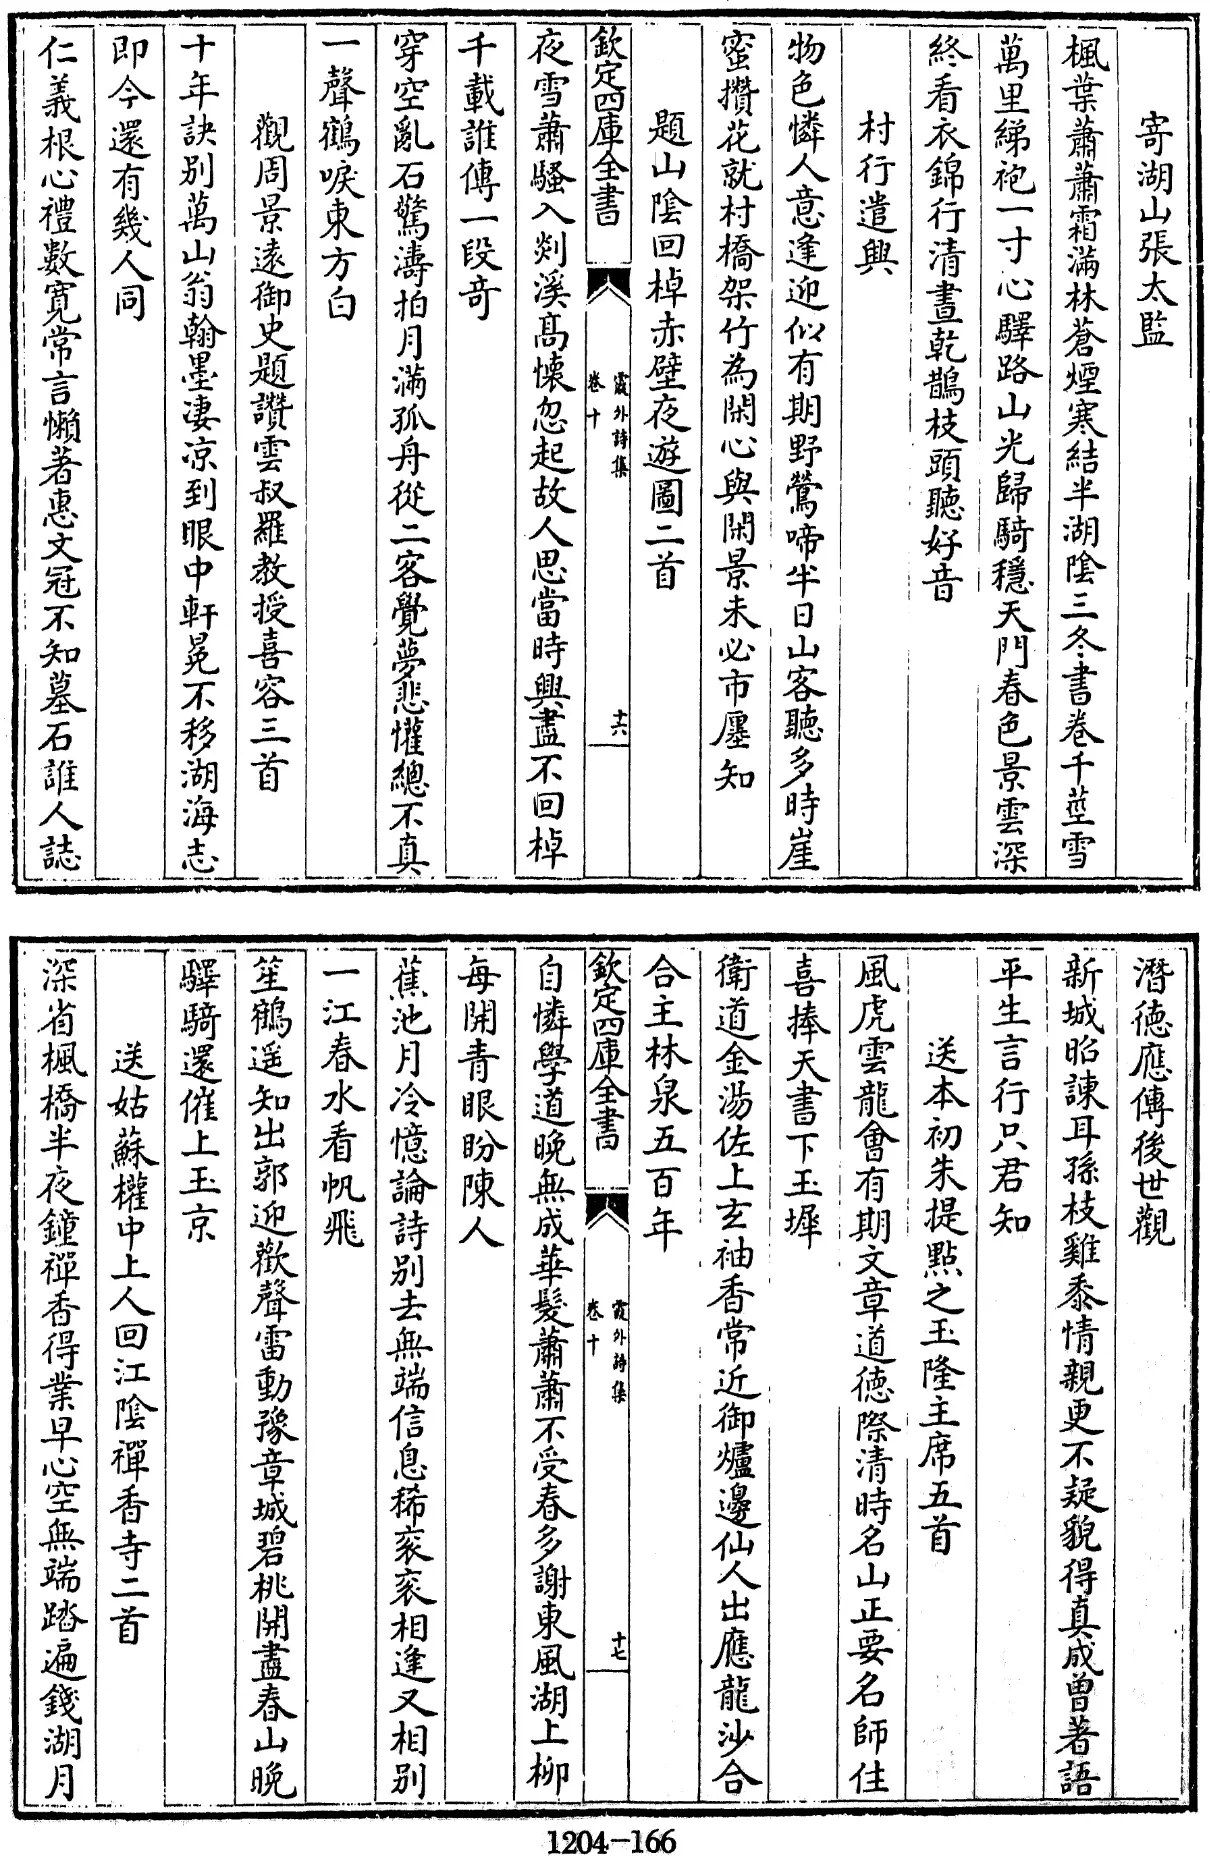 寄湖山張太監
楓葉蕭蕭霜滿林蒼煙寒結半湖陰三冬書卷千莖雪
萬里綈袍一寸心驛路山光歸騎穩天門春色景雲深
終看衣錦行清晝乾鵲枝頭聽好音
村行遣興
物色憐人意逢迎似有期野鶯啼半日山客聽多時崖
蜜攢花就村橋架竹為閑心與閑景未必市廛知
題山陰回棹赤壁夜遊圖二首
欽定四庫全書
霞外詩集
卷十
十六
夜雪蕭騷入剡溪高懷忽起故人思當時興盡不回棹
千載誰傳一段奇
穿空亂石驚濤拍月滿孤舟從二客覺夢悲懽總不真
一聲鶴唳東方白
觀周景遠御史題讚雲叔羅教授喜容三首
十年訣別萬山翁翰墨凄凉到眼中軒冕不移湖海志
即今還有幾人同
仁義根心禮數寛常言懶著惠文冠不知墓石誰人誌
潛德應傳後世觀
新城昭諫耳孫枝雞黍情親更不疑貌得真成曾著語
平生言行只君知
送本初朱提點之玉隆主席五首
風虎雲龍會有期文章道德際清時名山正要名師住
喜捧天書下玉墀
衛道金湯佐上玄袖香常近御爐邊仙人出應龍沙合
合主林泉五百年
欽定四庫全書
霞外詩集
卷十
十七
自憐學道晚無成華髮蕭蕭不受春多謝東風湖上柳
每開青眼盼陳人
蕉池月冷憶論詩别去無端信息稀衮衮相逢又相别
一江春水看帆飛
笙鶴遥知出郭迎歡聲雷動豫章城碧桃開盡春山晚
驛騎還催上玉京
送姑蘇權中上人回江陰禪香寺二首
深省楓橋半夜鐘禪香得業早心空無端踏遍錢湖月
1204-166